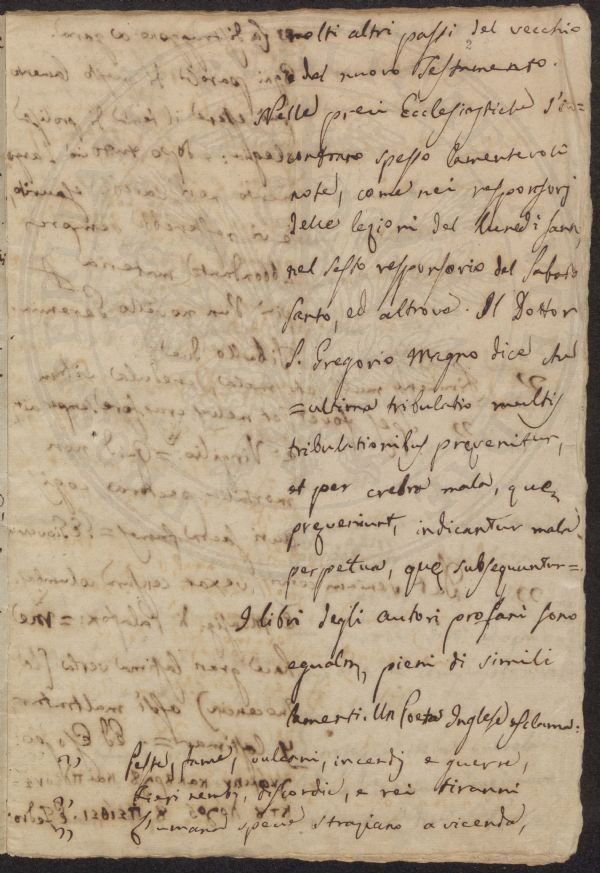 molti altri passi del vecchio
2
e del nuovo Testamento.
Nelle preci Ecclesiastiche s'in=
contrano spesso lamentevoli
note, come nei responsorj
delle lezioni del lunedi santo,
nel sesto responsorio del Sabato
santo, ed altrove. Il Dottor
S. Gregorio Magno dice che
=ultima tribulatio multis
tribulationibus prevenitur,
et per crebra mala, quę
preveniunt, indicantur mala
perpetua, quę subsequuntur=.
I libri degli autori profani sono
egualm, pieni di simili
lamenti. Un Poeta Inglese esclama:
,, Peste, fame, vulcani, incendj e guerre,
,, Fieri nembi, discordie, e rei tiranni
,, L'umana specie straziano a vicenda,